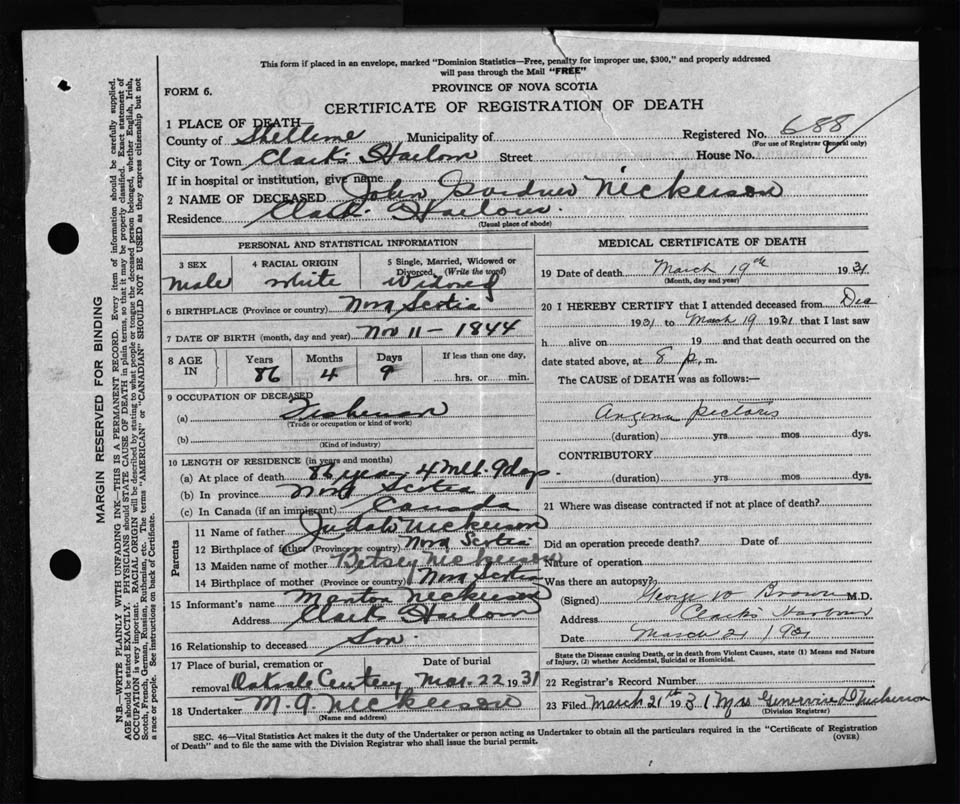 This form if placed in an envelope, marked "Dominion Statistics—Free, penalty for improper use, $300," and properly addressed
will pass through the Mail "FREE"
FORM 6.
PROVINCE OF NOVA SCOTIA
CERTIFICATE OF REGISTRATION OF DEATH
1 PLACE OF DEATH—
County of Shelburne Municipality of Registered No. 688
(For use of Registrar General only)
City or Town Clark's Harbour Street House No.
If in hospital or institution, give name
2 NAME OF DECEASED John Gardner Nickerson
Residence Clark's Harbour.
(Usual place of abode)
PERSONAL AND STATISTICAL INFORMATION
3 SEX 4 RACIAL ORIGIN 5 Single, Married, Widowed or
Divorced, (Write the word)
Male white Widowed
6 BIRTHPLACE (Province or country) Nova Scotia
7 DATE OF BIRTH (month, day and year) Nov 11 - 1844
8 AGE IN Years Months Days If less than one day,
86 4 9 hrs. or min.
9 OCCUPATION OF DECEASED
(a) Fisherman
(Trade or occupation or kind of work)
(b)
(Kind of industry)
10 LENGTH OF RESIDENCE (in years and months)
(a) At place of death 86 year 4 Mth. 9 days.
(b) In province Nova Scotia
(c) In Canada (if an immigrant) Canada
Parents
11 Name of father Judah Nickerson
12 Birthplace of father (Province or country) Nova Scotia
13 Maiden name of mother Betsey Nickerson
14 Birthplace of mother (Province or country) Nova Scotia
15 Informant's name Manton Nickerson
Address Clark's Harbour
16 Relationship to deceased Son.
17 Place of burial, cremation or Date of burial
removal Mar. 22 1931
18 Undertaker M. A. Nickerson
(Name and address)
MEDICAL CERTIFICATE OF DEATH
19 Date of death March 19th 1931
(Month, day and year)
20 I HEREBY CERTIFY that I attended deceased from Dec
1931 to March 19 1931 that I last saw
h alive on 19 and that death occurred on the
date stated above, at 8 p. m.
The CAUSE of DEATH was as follows:—
Angina pectoris
(duration) yrs mos dys.
CONTRIBUTORY
(duration) yrs mos dys.
21 Where was disease contracted if not at place of death?
Did an operation precede death? Date of
Nature of operation
Was there an autopsy?
(Signed) George W Brown M.D.
Address Clark's Harbour
Date March 21 1931
State the Disease causing Death, or in death from Violent Causes, state (1) Means and Nature
of Injury, (2) whether Accidental, Suicidal or Homicidal.
22 Registrar's Record Number
23 Filed March 21th 1931 Mrs Nickerson
(Division Registrar)
SEC. 46—Vital Statistics Act makes it the duty of the Undertaker or person acting as Undertaker to obtain all the particulars required in the "Certificate of Registration
of Death" and to file the same with the Division Registrar who shall issue the burial permit.
(OVER)
MARGIN RESERVED FOR BINDING
N.B.—WRITE PLAINLY WITH UNFADING INK—THIS IS A PERMANENT RECORD. Every item of information should be carefully supplied.
AGE should be stated EXACTLY. PHYSICIANS should STATE CAUSE OF DEATH in plain terms, so that it may be properly classified. Exact statement of
OCCUPATION is very important. RACIAL ORIGIN will be described by stating to what people or tongue the deceased person belonged, whether English, Irish,
Scotch, French, German, Russian, Ruthenian, etc. The terms "AMERICAN" or "CANADIAN" SHOULD NOT BE USED as they express citizenship but not
a race or people. See instructions on back of Certificate.